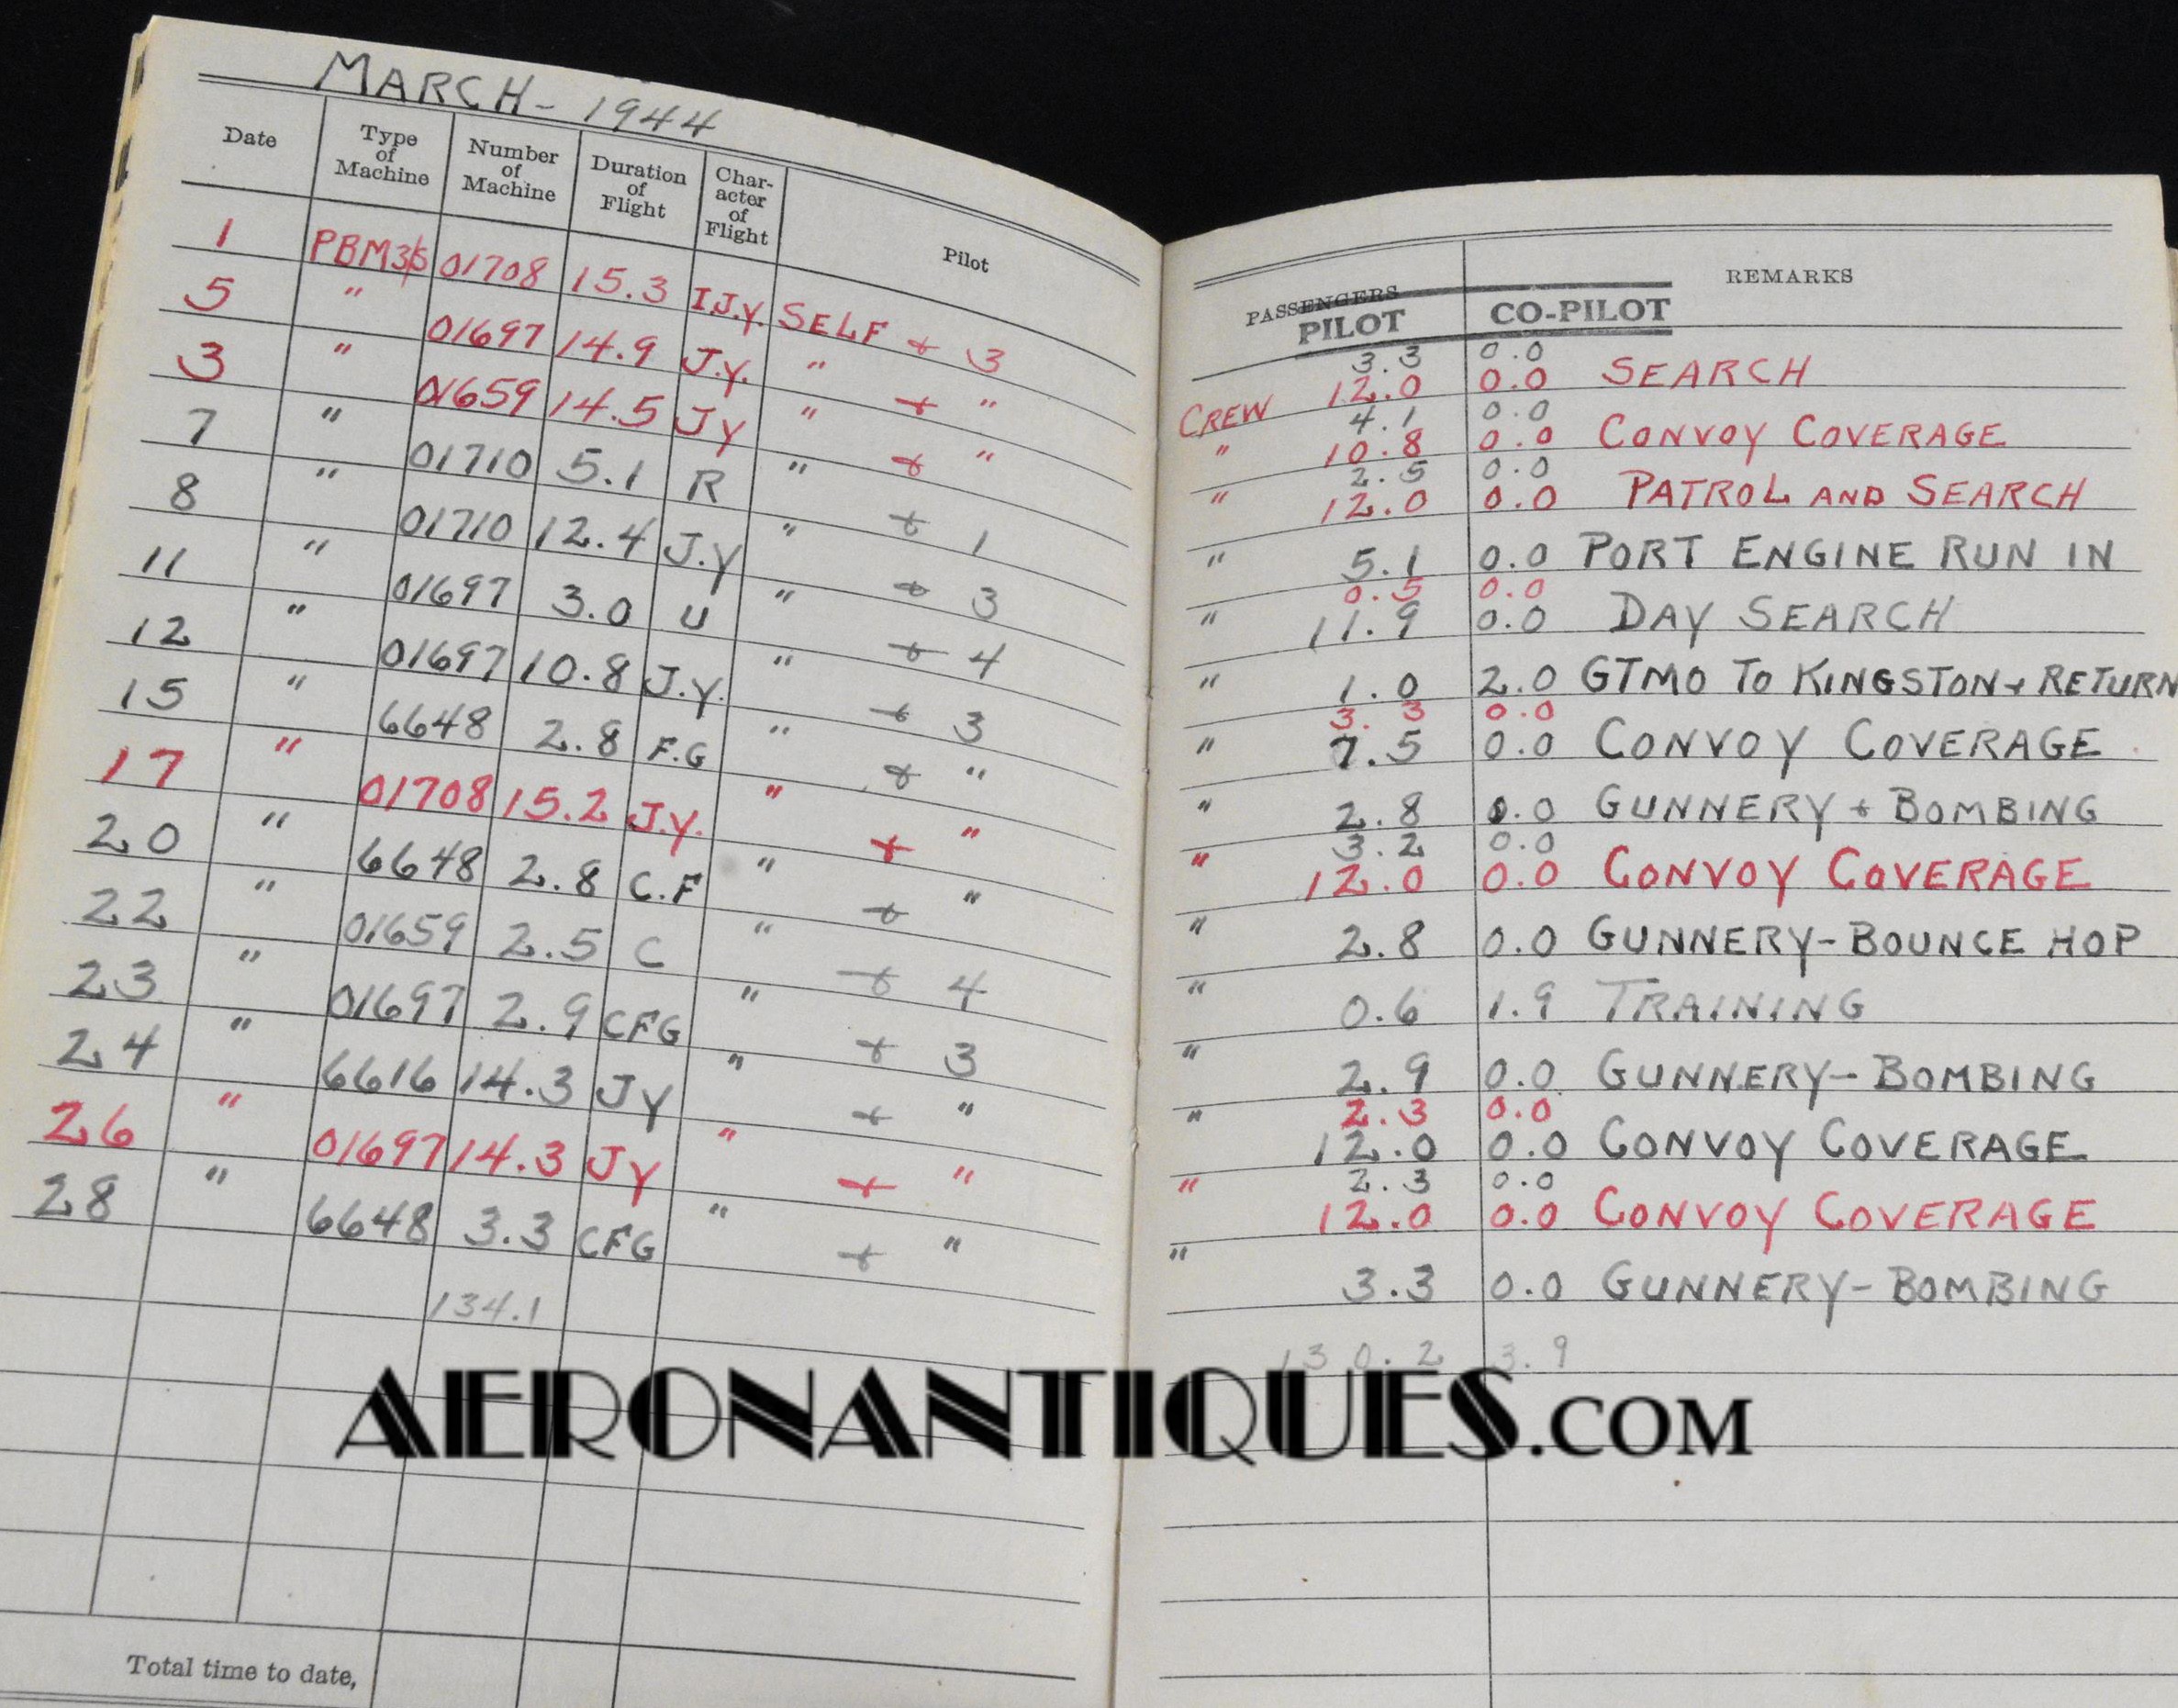 MARCH - 1944
Date Type of Machine Number of Machine Duration of Flight Char-acter of Flight Pilot PASSENGERS PILOT CO-PILOT REMARKS
3.3 0.0
1 PBM3S 01708 15.3 IJ.Y. SELF + 3 CREW 12.0 0.0 SEARCH
4.1 0.0
5 " 01697 14.9 J.Y. " + " " 10.8 0.0 CONVOY COVERAGE
2.5 0.0
3 " 01659 14.5 JY " + " " 12.0 0.0 PATROL AND SEARCH
7 " 01710 5.1 R " + 1 " 5.1 0.0 PORT ENGINE RUN IN
0.5 0.0
8 " 01710 12.4 J.Y " + 3 " 11.9 0.0 DAY SEARCH
11 " 01697 3.0 U " + 4 " 1.0 2.0 GTMO TO KINGSTON + RETURN
3.3 0.0
12 " 01697 10.8 J.Y. " + 3 " 7.5 0.0 CONVOY COVERAGE
15 " 6648 2.8 F.G " + " " 2.8 0.0 GUNNERY + BOMBING
3.2 0.0
17 " 01708 15.2 J.Y. " + " " 12.0 0.0 CONVOY COVERAGE
20 " 6648 2.8 C.F " + " " 2.8 0.0 GUNNERY-BOUNCE HOP
22 " 01659 2.5 C " + 4 " 0.6 1.9 TRAINING
23 " 01697 2.9 CFG " + 3 " 2.9 0.0 GUNNERY-BOMBING
2.3 0.0
24 " 6616 14.3 JY " + " " 12.0 0.0 CONVOY COVERAGE
2.3 0.0
26 " 01697 14.3 JY " + " " 12.0 0.0 CONVOY COVERAGE
28 " 6648 3.3 CFG " + " " 3.3 0.0 GUNNERY-BOMBING
134.1 130.2 3.9
AERONANTIQUES.COM
Total time to date,